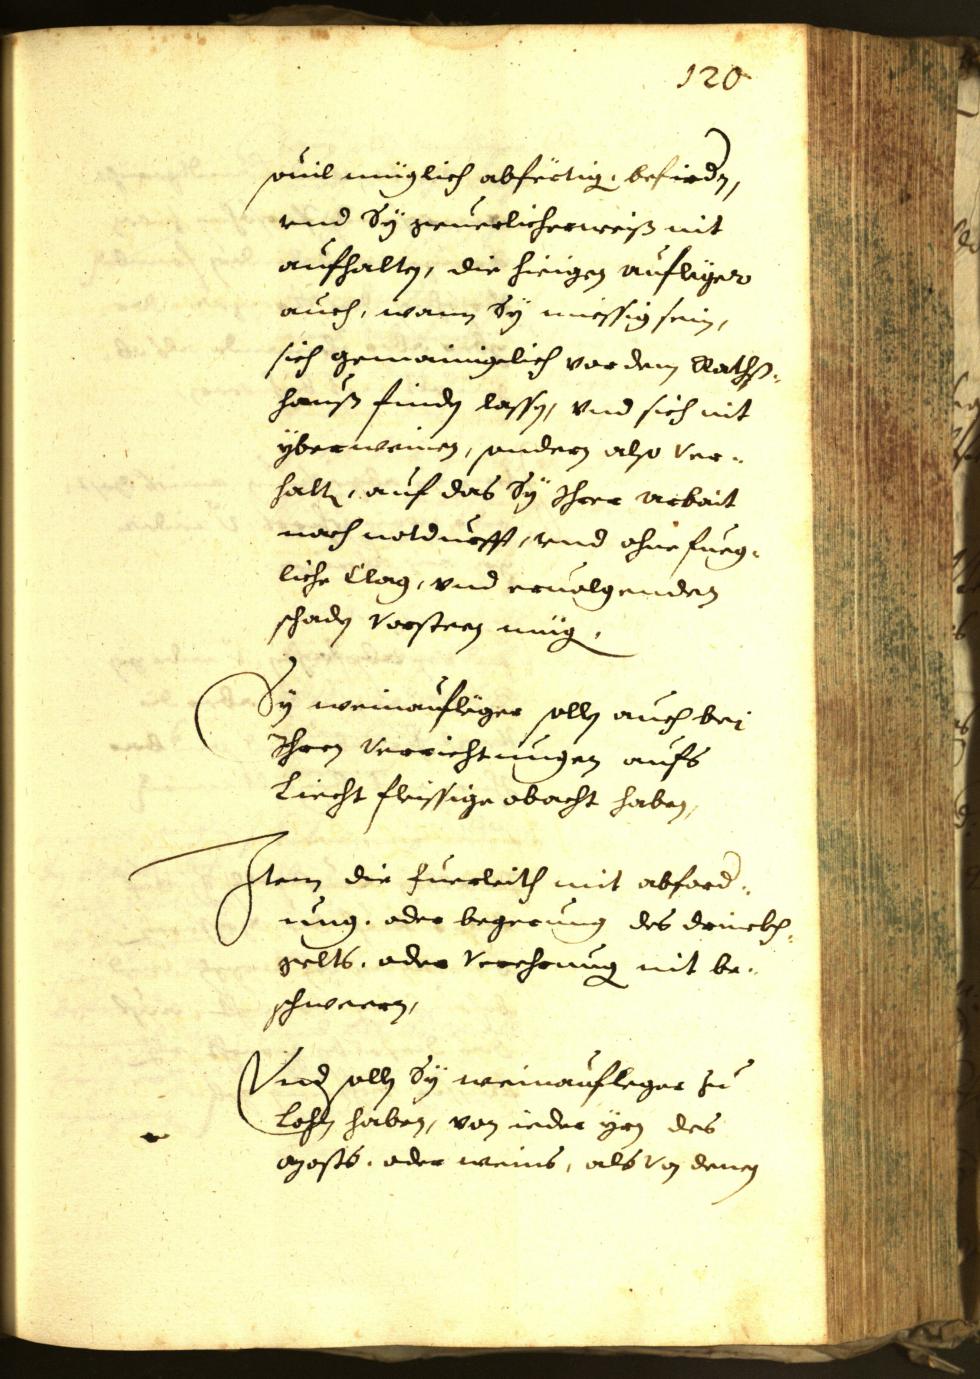 120
souil müglich abfertig, befirdn,
vnd Sÿ geuerlicherweiß nit
aufhalten, die hieigen Aufleger
auch, wann Sÿ miessig sein,
sich gemainigelich vor dem Rathß-
hauß findn lassn, vnd sich nit
yberweinen, sondern also ver-
haltn, auf das Sÿ Ihrer arbait
nach notdurfft, vnd ohne fueg-
liche Clag, vnd eruolgenden
schadn Vorsteen müg,
Sÿ weinaufleger solln auch bei
Ihren Verrichtungen aufs
Liecht fleissige obacht haben,
Item die fuerleith mit abford-
ung, oder begerung des drinckh-
gelts, oder Verehrung nit be-
schweern,
Vnd solln Sÿ weinaufleger zu
Lohn haben, von ieder yrn des
mosts, oder weins, als von denen